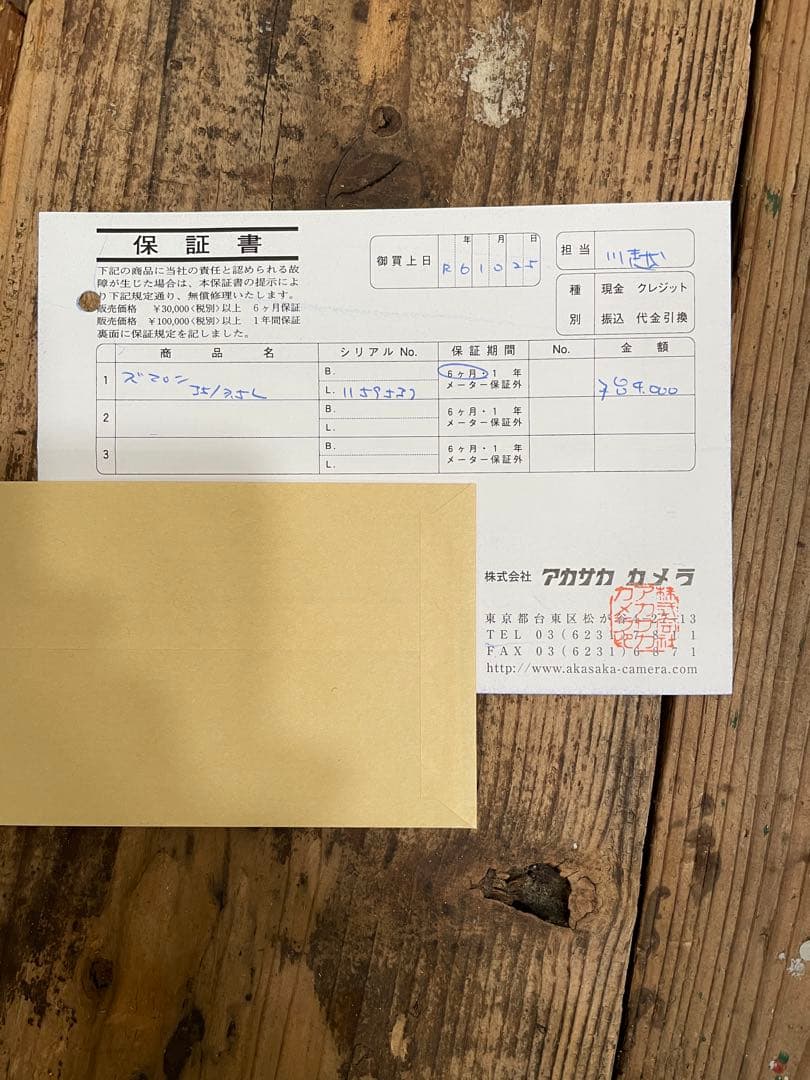 保証書
下記の商品に当社の責任と認められる故
障が生じた場合は、本保証書の提示によ
り下記規定通り、無償修理いたします。
販売価格 ¥30,000〈税別〉以上 6ヶ月保証
販売価格 ¥100,000〈税別〉以上 1年間保証
裏面に保証規定を記しました。
御買上日 年 月 日
R 6 1 0 2 5
担当 川越
種別 現金 クレジット
振込 代金引換
商品名 シリアル No. 保証期間 No. 金額
1 ズマロン 35/3.5L B. 6ヶ月・1年
L. 1159537 メーター保証外
2 B. 6ヶ月・1年
L. メーター保証外
3 B. 6ヶ月・1年
L. メーター保証外
株式会社 アカサカ カメラ
東京都台東区松が谷
TEL 03(6231)
FAX 03(6231)6871
http://www.akasaka-camera.com